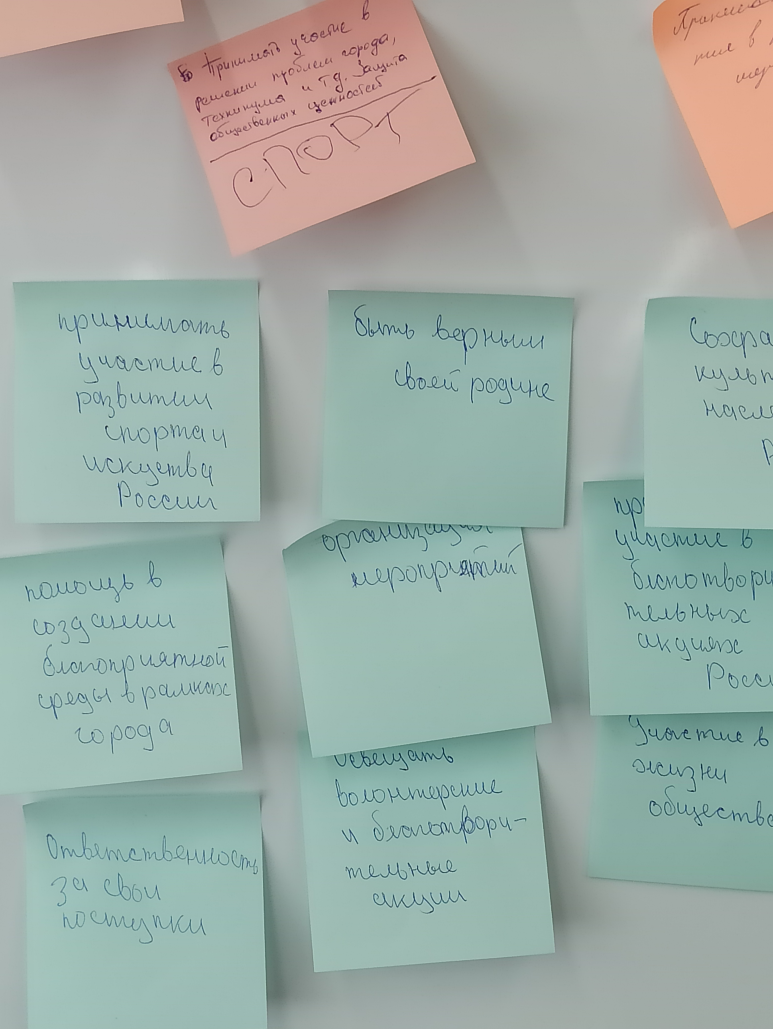 Принимать участие в
решении проблем города,
техникума и тд. Защита
общественных ценностей
СПОРТ
принимать
участие в
развитии
спорта и
искуства
России
быть верным
своей родине
Сохра
культ
насл
помощь в
создании
благоприятной
среды в рамках
города
организация
мероприятий
пр
участие в
благотвори
тельных
акциях
Росси
Ответственность
за свои
поступки
Освещать
волонтерские
и благотвори-
тельные
акции
Участие в
жизни
общества